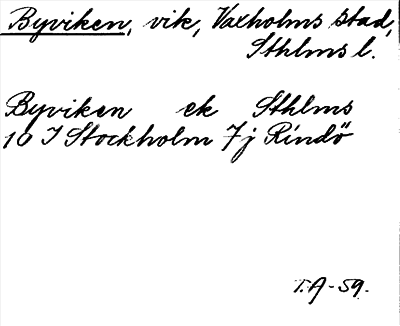 Byviken, vik, Vaxholms stad,
Sthlms l.
Byviken ek Sthlms
10 I Stockholm 7j Rindö
T.A-59.